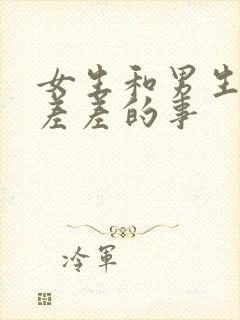 女生和男生
差差的事
冷军